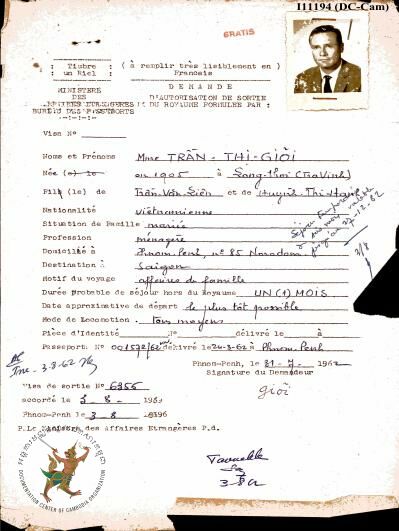 I11194 (DC-Cam)
GRATIS
: Timbre :
: un Riel :
( à remplir très lisiblement en )
Francais
DEMANDE
MINISTERE
DES
D'AUTORISATION DE SORTIE
AFFAIRES ETRANGERES
DU ROYAUME FORMULEE PAR :
BUREAU DES PASSEPORTS
Visa No
Noms et Prénoms Mme TRẦN - THỊ - GIỎI
Née (o) le en 1905 à Song-thoi (TraVinh)
Fils (le) de Trần Văn Siên et de Huynh Thi Hanh
Nationalité vietnamienne
Situation de Famille mariée
Profession ménagère
Domicilié à Phnom-Penh, n° 85 Norodom
Destination à Saigon
Motif du voyage affaires de famille
Durée probable de séjour hors du Royaume UN (1) MOIS
Date approximative de départ le plus tôt possible
Mode de Locomotion Tous moyens
Pièce d'Identité No délivré le à
Passeport No 001572/62 délivré le 26-3-62 à Phnom-Penh
3/8
3-8-62
Phnom-Penh, le 31-7-1962
Signature du Demandeur
giỏi
Visa de sortie No 6355
accordé le 3-8-196
Phnom-Penh 3-8-196
P.Le Ministre des Affaires Etrangères P.d.
DOCUMENTATION CENTER OF CAMBODIA ORGANIZATION